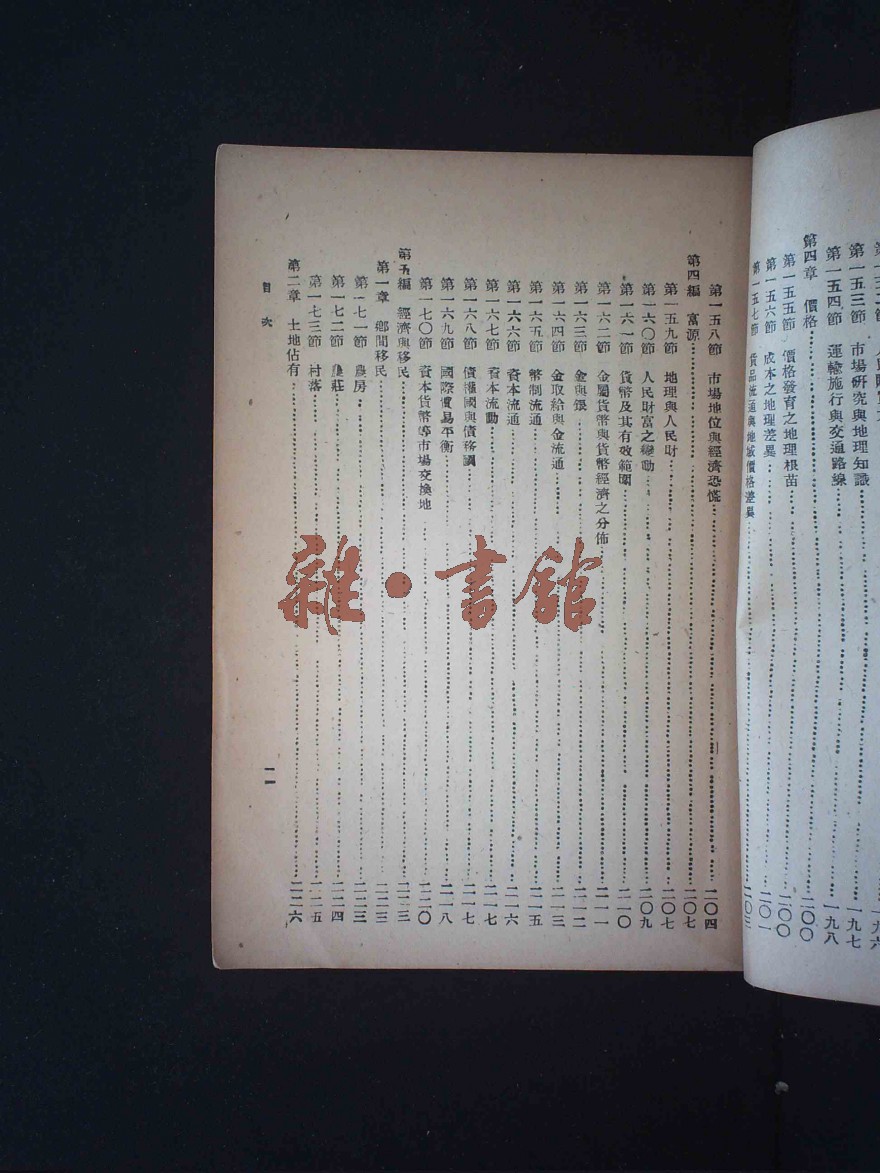 第一五三節 市場研究與地理知識 一九七
第一五四節 運輸施行與交通路線 一九八
第四章 價格 二〇〇
第一五五節 價格發育之地理根苗 二〇〇
第一五六節 成本之地理差異 二〇一
第一五七節 貨品流通與地域價格差異 二〇三
第一五八節 市場地位與經濟恐慌 二〇四
第四編 富源 二〇七
第一五九節 地理與人民財 二〇七
第一六〇節 人民財富之變動 二〇九
第一六一節 貨幣及其有效範圍 二一〇
第一六二節 金屬貨幣與貨幣經濟之分佈 二一一
第一六三節 金與銀 二一二
第一六四節 金取給與金流通 二一三
第一六五節 幣制流通 二一五
第一六六節 資本流通 二一六
第一六七節 資本流動 二一七
第一六八節 債權國與債務國 二一七
第一六九節 國際貿易平衡 二一八
第一七〇節 資本貨幣等市場交換地 二二〇
第五編 經濟與移民 二二三
第一章 鄉間移民 二二三
第一七一節 農房 二二三
第一七二節 農莊 二二四
第一七三節 村落 二二五
第二章 土地佔有 二二六
目次
一一
雜·書館